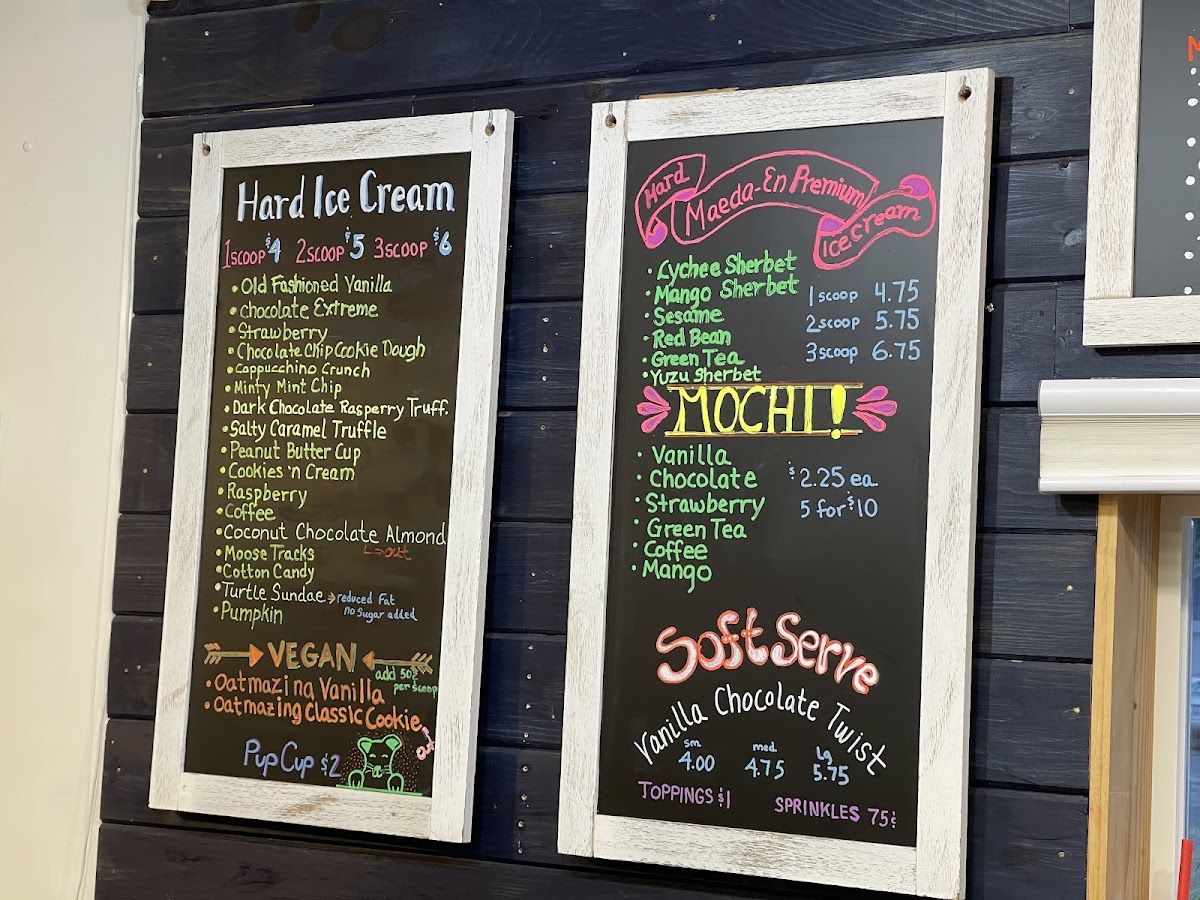 Hard Ice Cream
1scoop $4 2scoop $5 3scoop $6
• Old Fashioned Vanilla
• Chocolate Extreme
• Strawberry
• Chocolate Chip Cookie Dough
• Cappucchino Crunch
• Minty Mint Chip
• Dark Chocolate Rasperry Truff.
• Salty Caramel Truffle
• Peanut Butter Cup
• Cookies 'n Cream
• Raspberry
• Coffee
• Coconut Chocolate Almond
• Moose Tracks
out
• Cotton Candy
• Turtle Sundae → reduced Fat
no Sugar added
• Pumpkin
VEGAN
add 50¢
per scoop
• Oatmazing Vanilla
• Oatmazing Classic Cookie
Pup Cup $2
Hard
Maeda-En Premium
Ice cream
• Lychee Sherbet
• Mango Sherbet
• Sesame
• Red Bean
• Green Tea
• Yuzu Sherbet
1 scoop 4.75
2 scoop 5.75
3 scoop 6.75
MOCHI!
• Vanilla
• Chocolate
• Strawberry
• Green Tea
• Coffee
• Mango
$2.25 ea
5 for $10
Soft Serve
Vanilla Chocolate Twist
sm. med. Lg
4.00 4.75 5.75
TOPPINGS $1
SPRINKLES 75¢